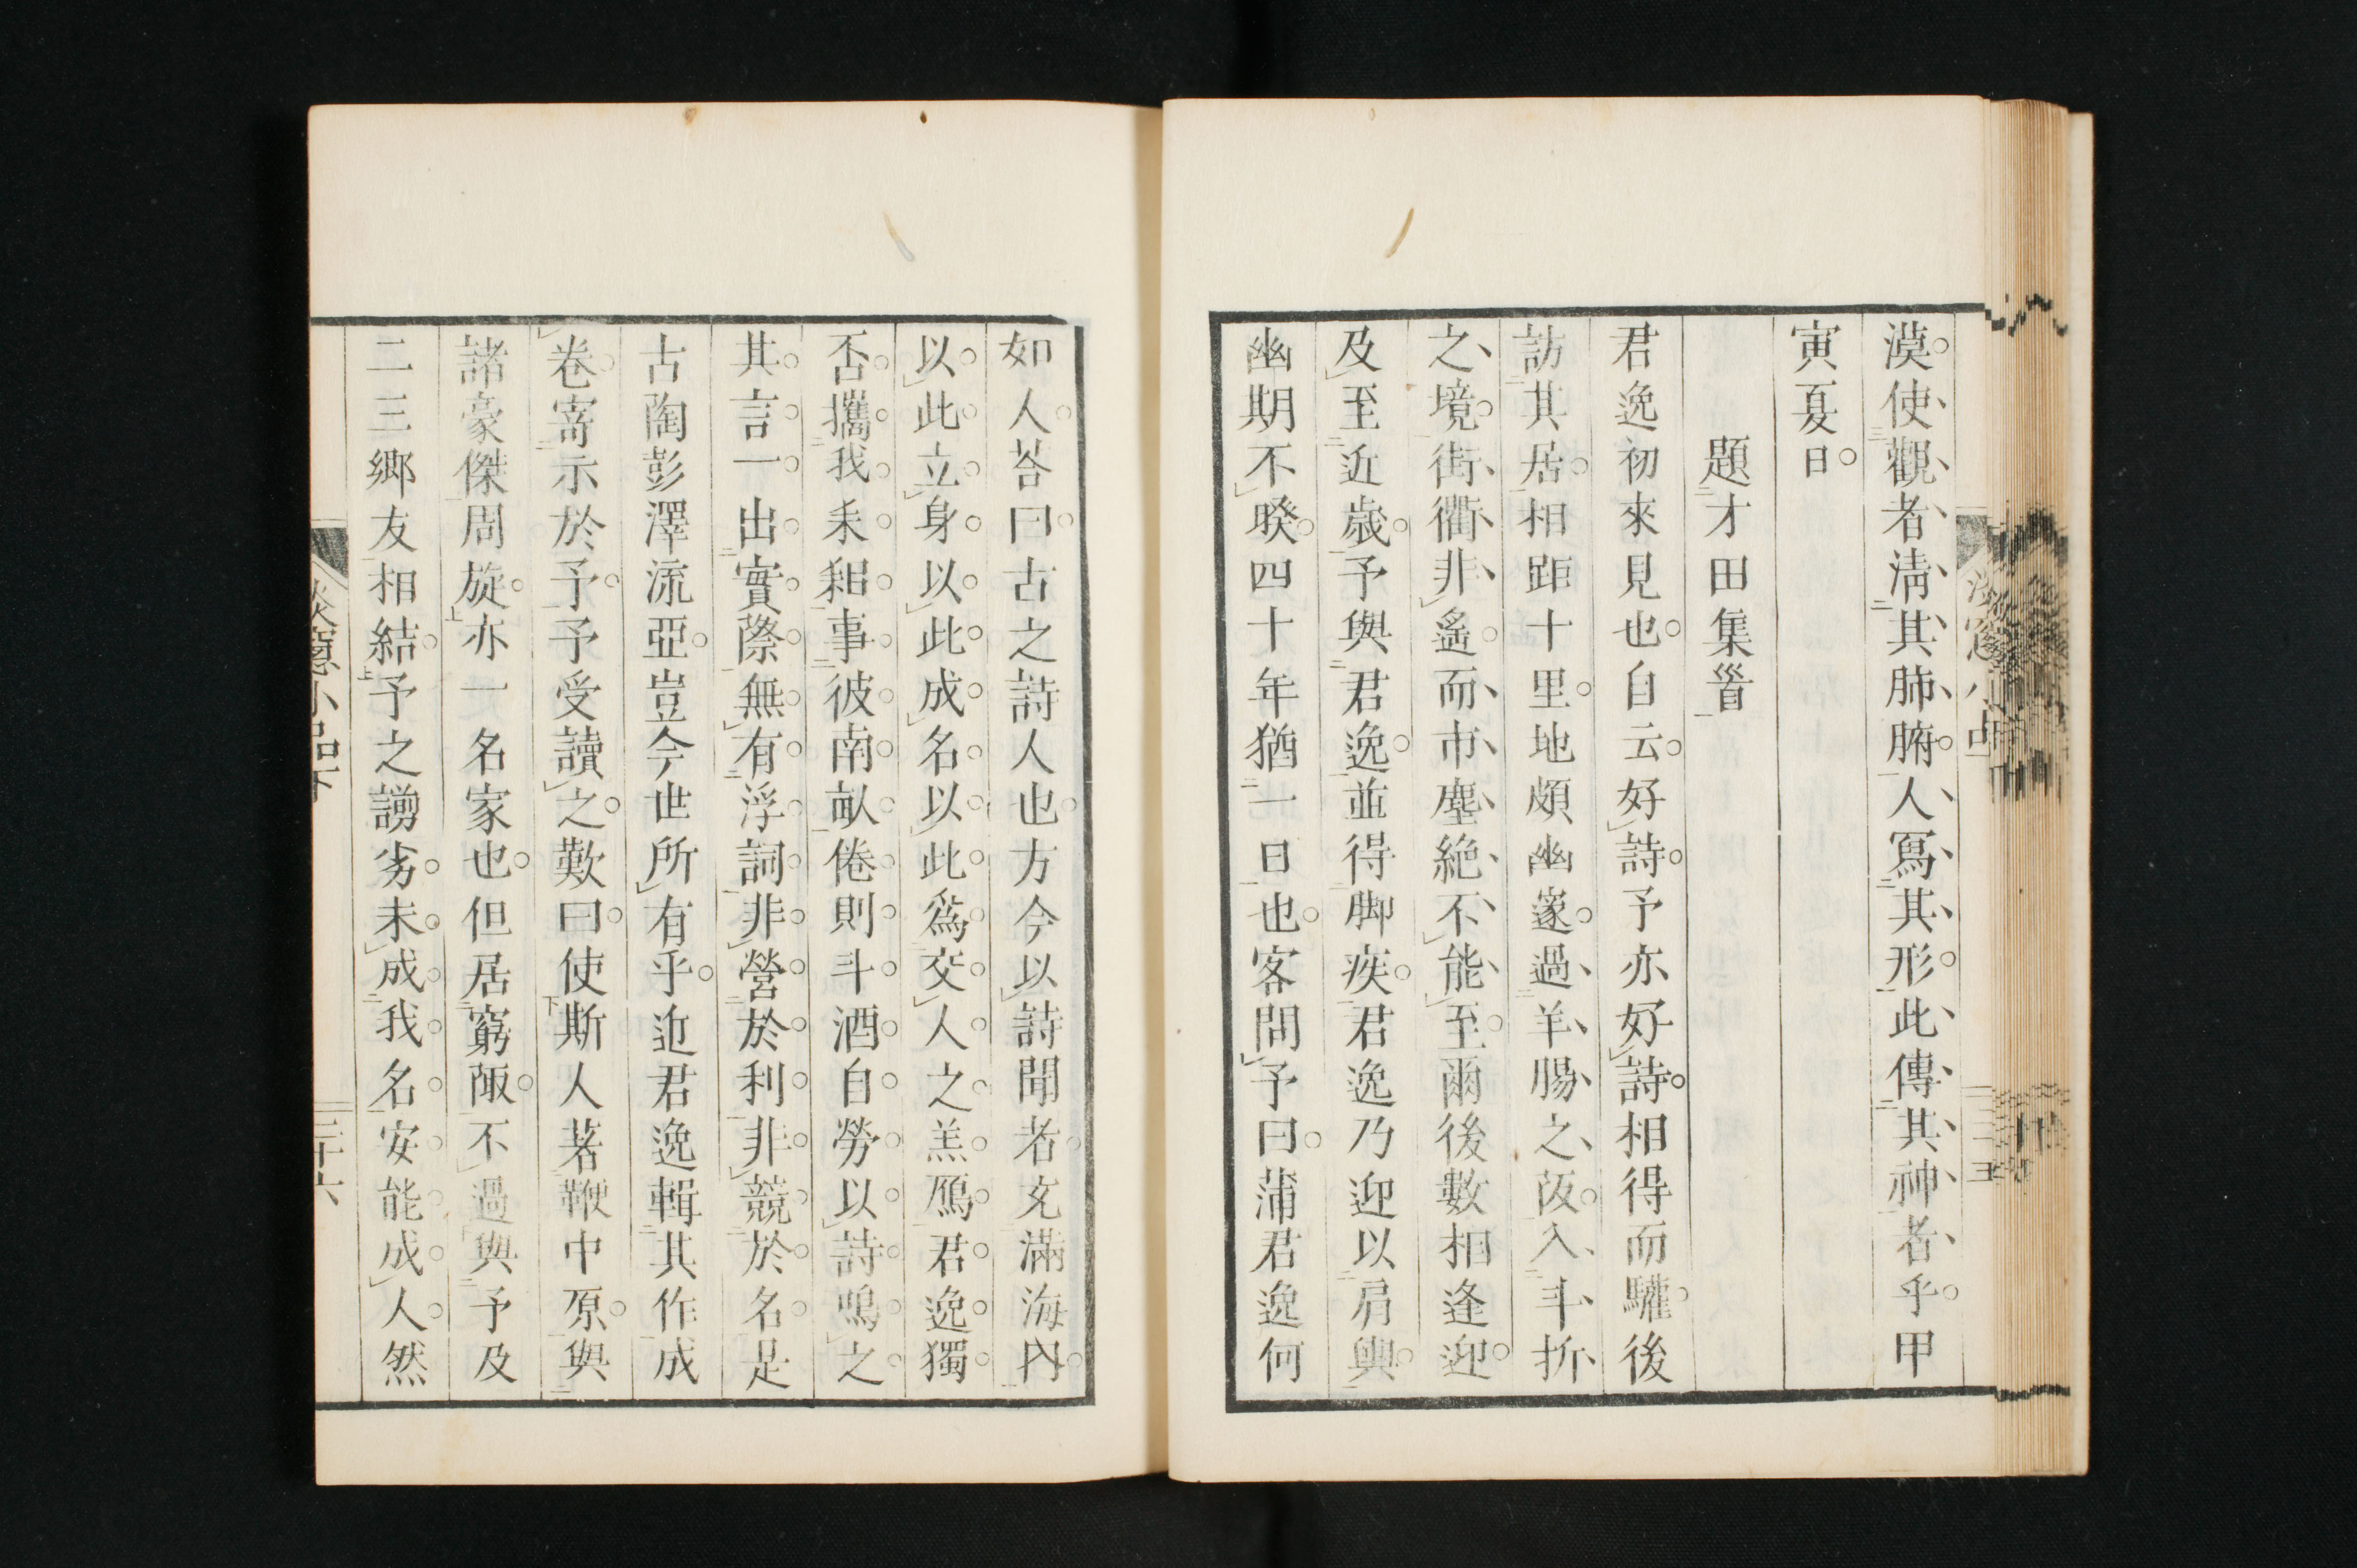 漠使觀者淸其肺腑人寫其形此傳其神者乎甲
寅夏日
題才田集首
君逸初來見也自云好詩予亦好詩相得而驩後
訪其居相距十里地頗幽邃過羊腸之阪入斗折
之境街衢非遙而市塵絶不能至爾後數相逢迎
及至近歲予與君逸並得脚疾君逸乃迎以肩輿
幽期不暌四十年猶一日也客問予曰蒲君逸何
如人荅曰古之詩人也方今以詩聞者充滿海內
以此立身以此成名以此爲交人之羔鴈君逸獨
否攜我耒耜事彼南畝倦則斗酒自勞以詩鳴之
其言一出實際無有浮詞非營於利非競於名足
古陶彭澤流亞豈今世所有乎近君逸輯其作成
卷寄示於予予受讀之歎曰使斯人著鞭中原與
諸豪傑周旋亦一名家也但居窮陬不過與予及
二三鄉友相結予之謭劣未成我名安能成人然
淡窻小品下
三十六